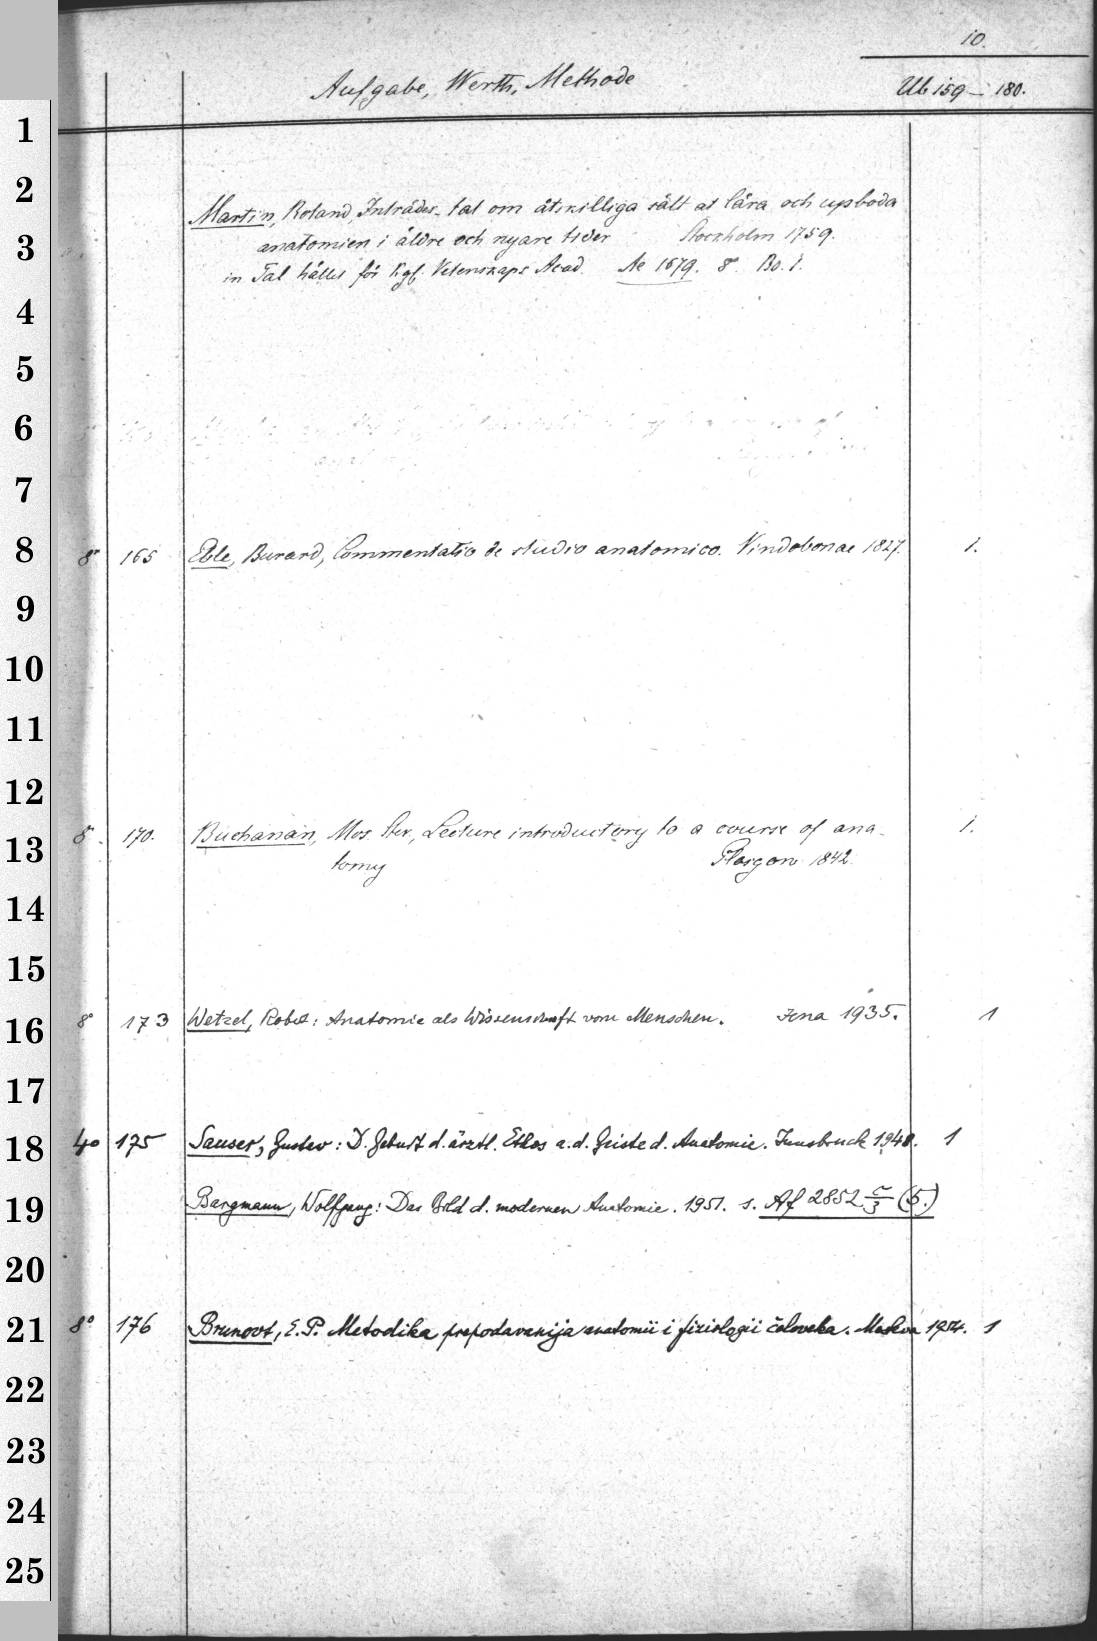 10.
Aufgabe, Werth, Methode Ub 159 – 180.
1
2
Martin, Roland, Inträdes-tal om åtskilliga sätt at lära och upboda
3
anatomien i äldre och nyare tider Stockholm 1759.
in Tal hållet för Kgl. Vetenskaps Acad. Ae 1679. 8°. Bd. 1.
4
5
6
7
8
8° 165 Eble, Burard, Commentatio de studio anatomico. Vindobonae 1827. 1.
9
10
11
12
13
8°. 170. Buchanan, Mos. Ster., Lecture introductory to a course of ana-
1.
tomy Glasgow 1842.
14
15
16
8° 173 Wetzel, Robet: Anatomie als Wissenschaft vom Menschen. Jena 1935. 1
17
18
4° 175 Sauser, Gustav: D. Geburt d. ärztl. Ethos a. d. Geiste d. Anatomie. Innsbruck 1948. 1
19
Bargmann, Wolfgang: Das Bild d. modernen Anatomie. 1951. s. Af 2852 c/3 (5.)
20
21
8° 176 Brunovt, E. P. Metodika prepodavanija anatomii i fiziologii čeloveka. Moskva 1954. 1
22
23
24
25